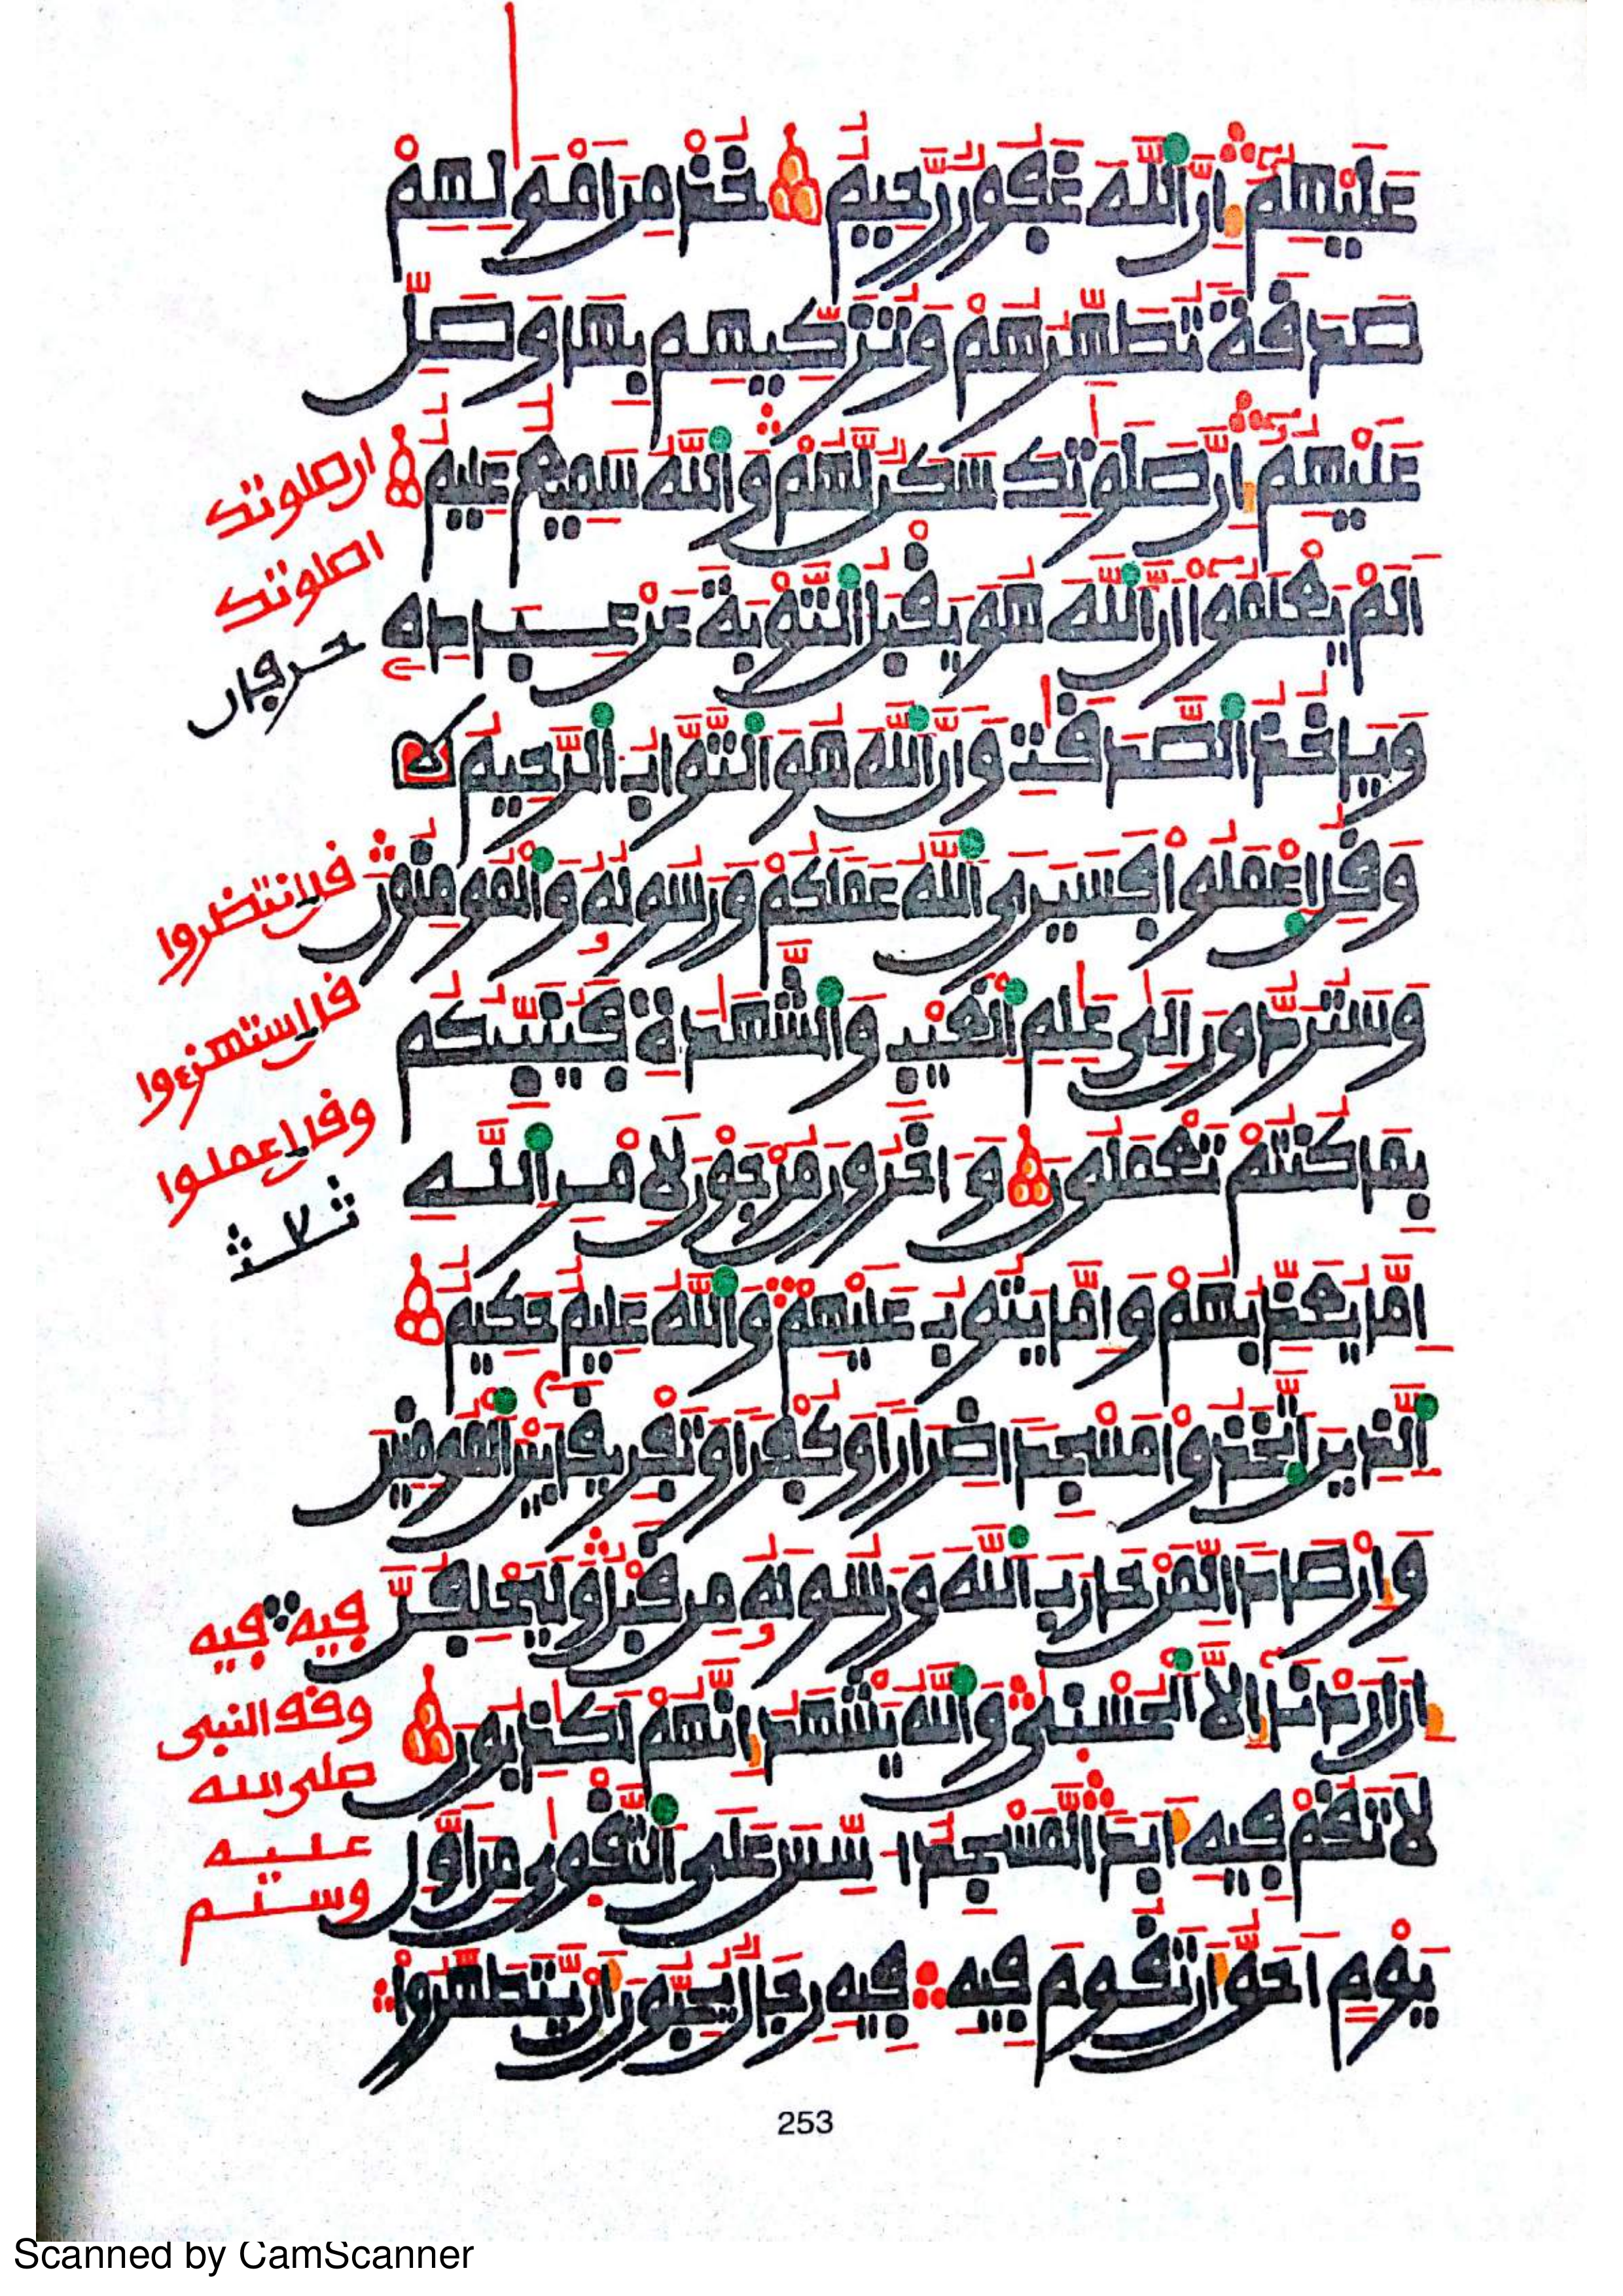 عَلَيْهِمُۥٓ إِنَّ اَللَّهَ غَفُورٌ رَّحِيمٌ خُذْ مِنَ اَمْوَٰلِهِمْ
صَدَقَةً تُطَهِّرُهُمْ وَتُزَكِّيهِم بِهَا وَصَلِّ
عَلَيْهِمُۥٓ إِنَّ صَلَوَٰتِكَ سَكَنٌ لَّهُمْ وَاللَّهُ سَمِيعٌ عَلِيمٌ
اَلَمْ يَعْلَمُوٓا أَنَّ اَللَّهَ هُوَ يَقْبَلُ اُلتَّوْبَةَ عَنْ عِبَادِهِۦ
وَيَاخُذُ اُلصَّدَقَٰتِ وَأَنَّ اَللَّهَ هُوَ اَلتَّوَّابُ اُلرَّحِيمُ
وَقُلِ اِعْمَلُوا فَسَيَرَى اَللَّهُ عَمَلَكُمْ وَرَسُولُهُۥ وَالْمُومِنُونَ
وَسَتُرَدُّونَ إِلَىٰ عَٰلِمِ اِلْغَيْبِ وَالشَّهَٰدَةِ فَيُنَبِّئُكُم
بِمَا كُنتُمْ تَعْمَلُونَ وَءَاخَرُونَ مُرْجَوْنَ لِأَمْرِ اِللَّهِ
إِمَّا يُعَذِّبُهُمْ وَإِمَّا يَتُوبُ عَلَيْهِمْ وَاللَّهُ عَلِيمٌ حَكِيمٌ
اَلذِينَ اَتَّخَذُوا مَسْجِدًا ضِرَارًا وَكُفْرًا وَتَفْرِيقًۢا بَيْنَ اَلْمُومِنِينَ
وَإِرْصَادًا لِّمَنْ حَارَبَ اَللَّهَ وَرَسُولَهُۥ مِن قَبْلُ وَلَيَحْلِفُنَّ
إِنَ اَرَدْنَآ إِلَّا اَلْحُسْنَىٰ وَاللَّهُ يَشْهَدُ إِنَّهُمْ لَكَٰذِبُونَ
لَا تَقُمْ فِيهِ أَبَدًا لَّمَسْجِدٌ اُسِّسَ عَلَى اَلتَّقْوَىٰ مِنَ اَوَّلِ
يَوْمٍ اَحَقُّ أَن تَقُومَ فِيهِ فِيهِ رِجَالٌ يُحِبُّونَ أَنْ يَّتَطَهَّرُوا
ان صلوتك
اصلوتك
حرفان
قل انتظروا
قل استهزءوا
وقل اعملوا
ثلاث
فيه فيه
وقف النبي
صلى الله
عليه
وسلم
253
Scanned by CamScanner